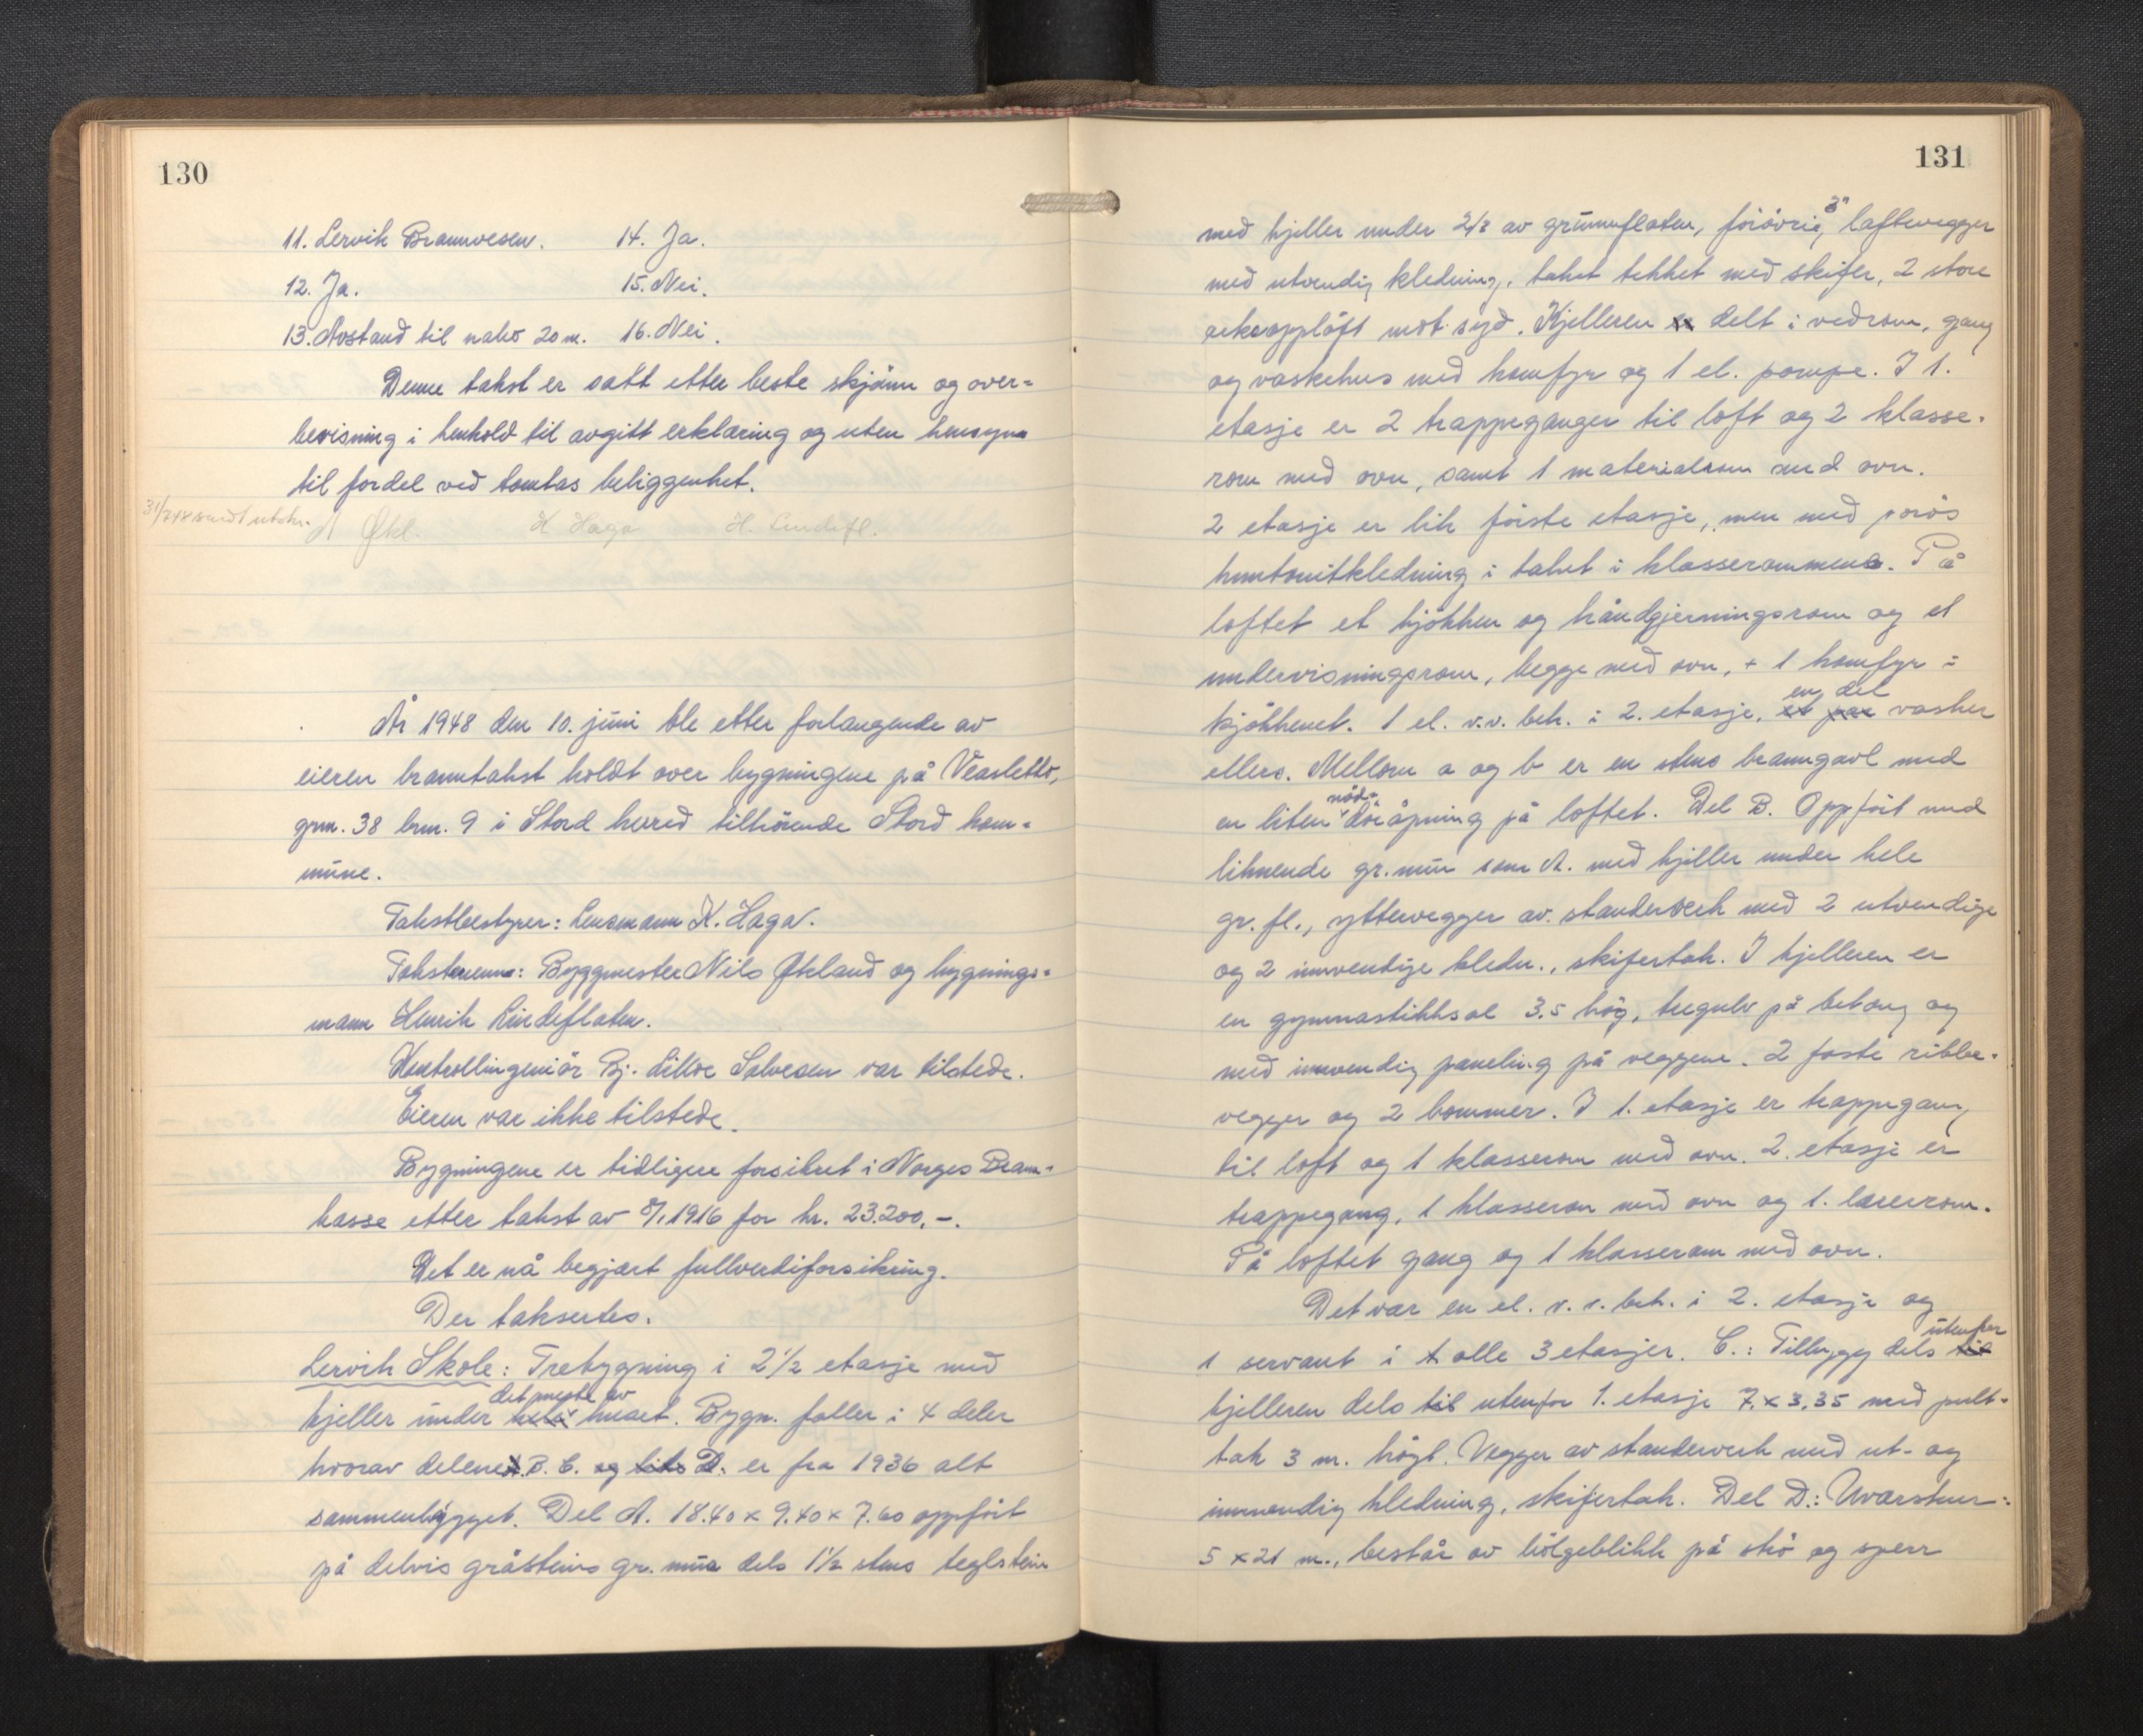 130
11. Lervik Brannvesen. 14. Ja.
12. Ja. 15. Nei.
13. Avstand til nabo 20 m. 16. Nei.
Denne takst er satt etter beste skjönn og over-
bevisning i henhold til avgitt erklæring og uten hensyn
til fordel ved tomtas beliggenhet.
31/7 48 sendt utskr.
N Økl. K Haga H. Lindefl.
År 1948 den 10. juni ble etter forlangende av
eieren branntakst holdt over bygningene på Vease
gnr. 38 brn. 9 i Stord herred tilhörende Stord kom-
mune.
Takstbestyrer: Lensmann K. Haga.
Takstmenn: Byggmester Nils Økland og bygnings-
mann Henrik Lindefloten.
Kontrollingeniör Bj. Lilloe Salvesen var tilstede.
Eieren var ikke tilstede.
Bygningene er tidligere forsikret i Norges Brann-
kasse etter takst av 8/1 1916 for kr. 23.200,-.
Det er nå begjært fullverdiforsikring.
Der taksertes.
Lervik Skole: Trebygning i 2 1/2 etasje med
det meste av
kjeller under hele huset. Bygn. faller i 4 deler
hvorav delene A. B. C. og D. er fra 1936 alt
sammenbygget. Del A. 18.40 x 9.40 x 7.60 oppfört
på delvis gråsteins gr. mur dels 1 1/2 stens teglstein
131
3"
med kjeller under 2/3 av grunnflaten, forövrig laftevegger
med utvendig kledning, taket tekket med skifer, 2 store
arkeopplöft mot syd. Kjelleren er delt i vedrom, gang
og vaskehus med komfyr og 1 el. pumpe. I 1.
etasje er 2 trappeganger til loft og 2 klasse-
rom med ovn, samt 1 materialrom med ovn.
2 etasje er lik förste etasje, men med porös
huntonitkledning i taket i klasserommene. På
loftet et kjökken og håndgjerningsrom og et
undervisningsrom, begge med ovn, + 1 komfyr i
en del
kjökkenet. 1 el. v.v. beh. i 2. etasje, et par vasker
ellers. Mellom a og b er en stens branngavl med
nöd-
en liten döråpning på loftet. Del B. Oppfört med
liknende gr. mur som A. med kjeller under hele
gr. fl., yttervegger av standerverk med 2 utvendige
og 2 innvendige kledn., skifertak. I kjelleren er
en gymnastikksal 3.5 høg, tregulv på betong og
med innvendig paneling på veggene. 2 faste ribbe-
vegger og 2 bommer. I 1. etasje er trappegang
til loft og 1 klasserom med ovn. 2. etasje er
trappegang, 1 klasserom med ovn og 1. lærerrom.
På loftet gang og 1 klasserom med ovn.
Det var en el. v. v. beh. i 2. etasje og
utenfor
1 servant i alle 3 etasjer. C.: Tilbygg dels til
kjelleren dels til utenfor 1. etasje 7. x 3.35 med pult-
tak 3 m. högt. Vegger av standerverk med ut- og
innvendig kledning, skifertak. Del D.: Uværskur:
5 x 21 m., består av bölgeblikk på stö og sperr